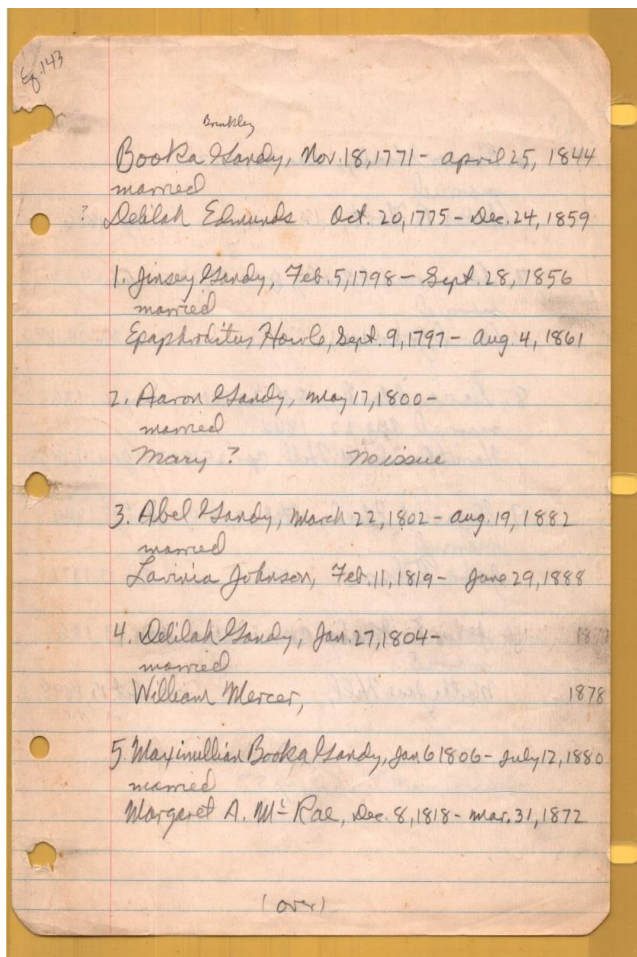 Eg. 143
Brinkley
Booka Gandy, Nov. 18, 1771 - April 25, 1844
married
? Delilah Edmunds Oct. 20, 1775 - Dec. 24, 1859
1. Jinsey Gandy, Feb. 5, 1798 - Sept. 28, 1856
married
Epaphroditus Howle, Sept. 9, 1797 - Aug. 4, 1861
2. Aaron Gandy, May 17, 1800 -
married
Mary ? No issue
3. Abel Gandy, March 22, 1802 - Aug. 19, 1882
married
Lavinia Johnson, Feb. 11, 1819 - June 29, 1888
4. Delilah Gandy, Jan. 27, 1804 -
married
William Mercer, 1878
5. Maximillian Booka Gandy, Jan 6 1806 - July 12, 1880
married
Margaret A. Mc Rae, Dec. 8, 1818 - Mar. 31, 1872
(over)